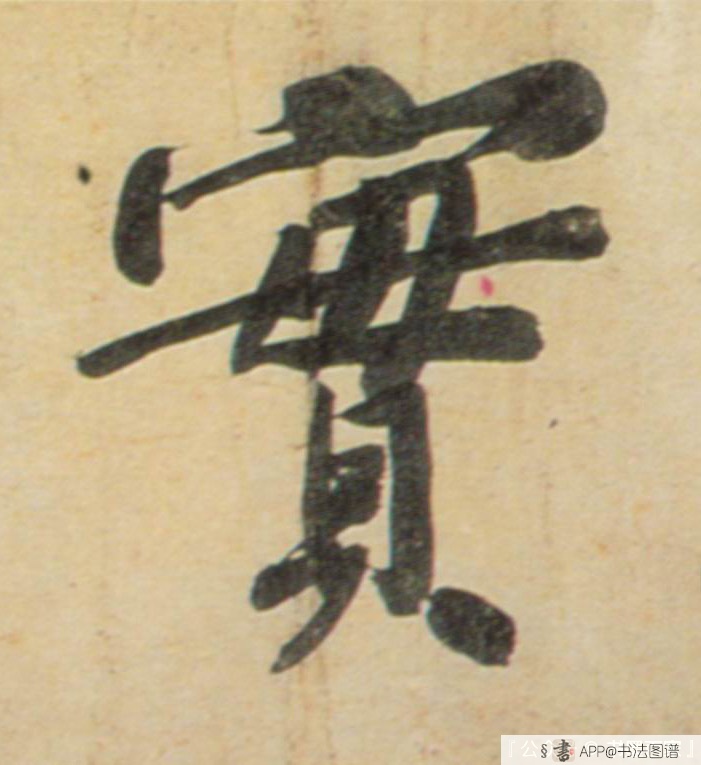 實
§書 APP@书法图谱